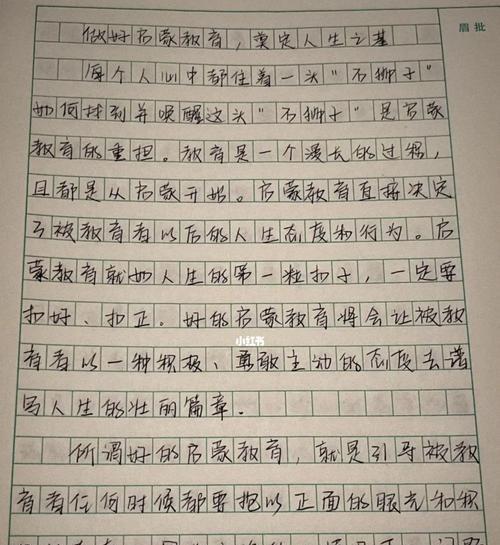 眉批
做好启蒙教育，奠定人生之基
每个人心中都住着一头“不狮子”
如何找到并唤醒这头“不狮子”是启蒙
教育的重担。教育是一个漫长的过程，
且都是从启蒙开始。启蒙教育直接决定
了被教育者以后的人生态度和行为。启
蒙教育就如人生的第一粒扣子，一定要
扣好、扣正。好的启蒙教育将会让被教
育者以一种积极、勇敢主动的态度去谱
写人生的壮丽篇章。
小红书
所谓好的启蒙教育，就是引导被教
育者任何时候都要抱以正面的眼光和积